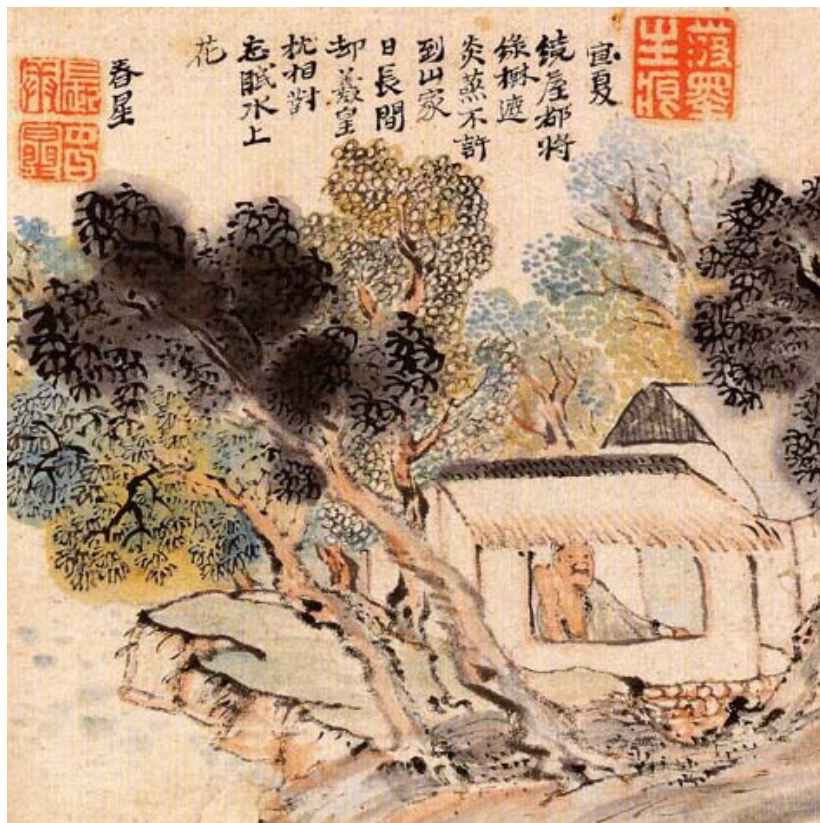 潑墨生痕
宜夏
繞屋都將
綠樹遮
炎蒸不許
到山家
日長間
却羲皇
枕相對
忘眠水上
花
春星